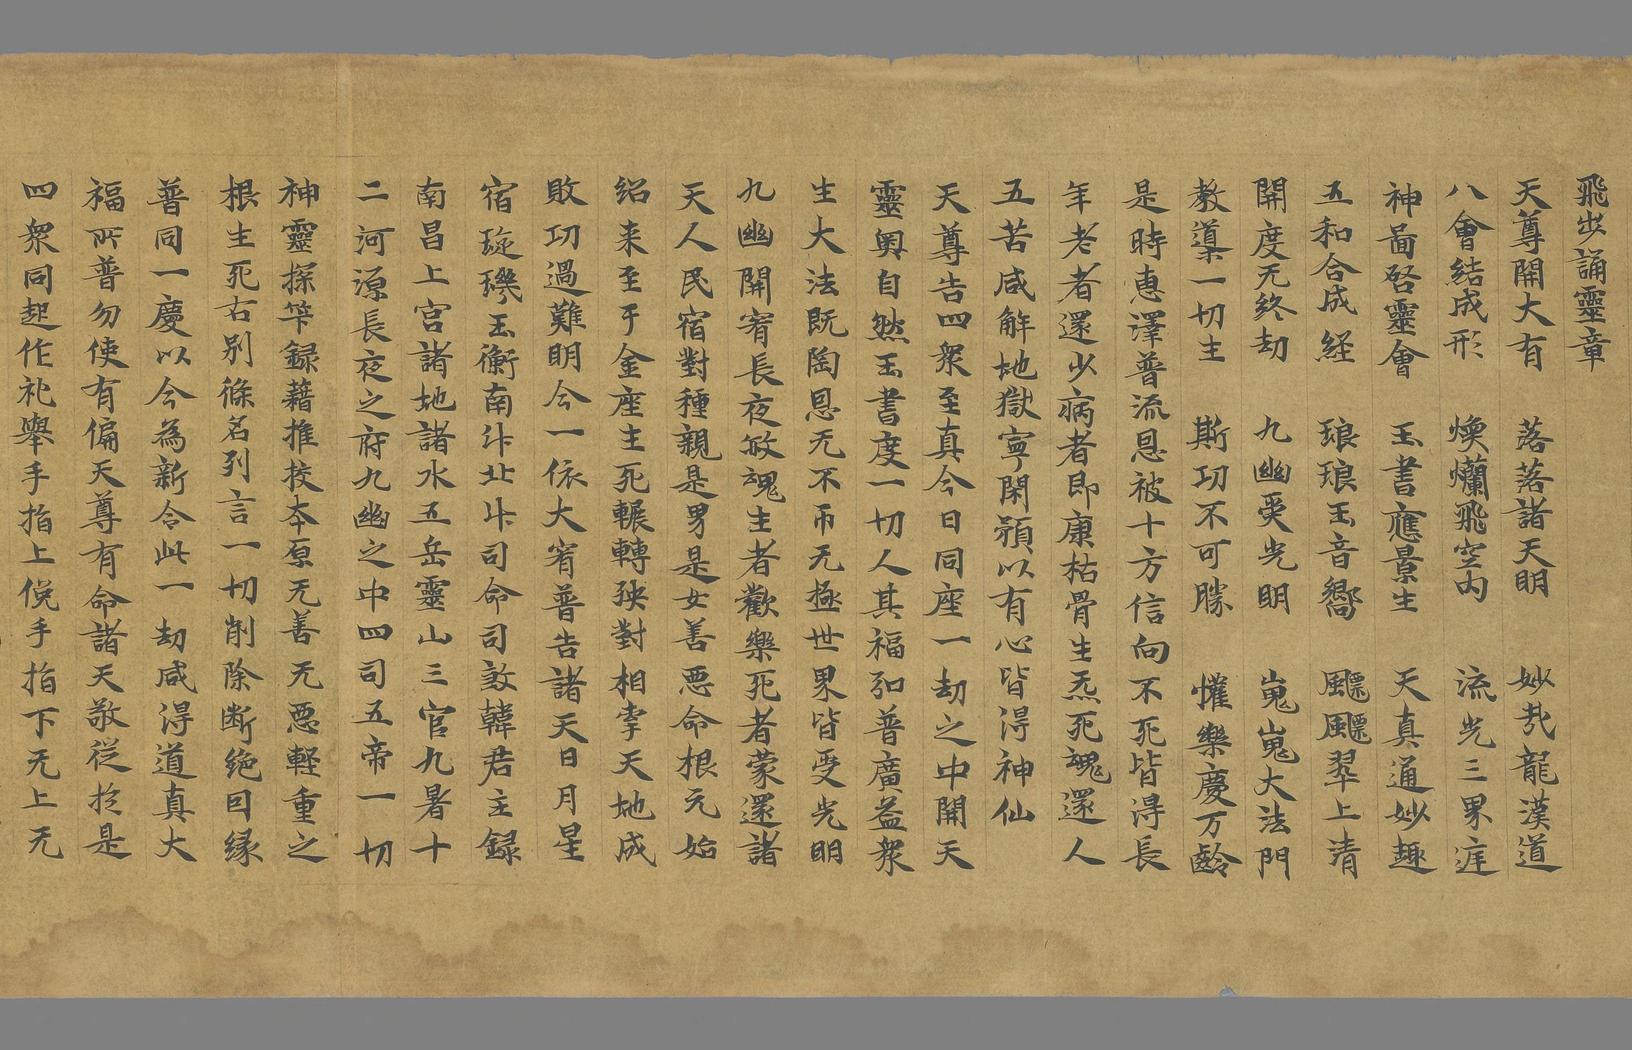 飛步誦靈章
天尊開大有 落落諸天明 妙哉龍漢道
八會結成形 煥爛飛空内 流光三界庭
神啚啓靈會 玉書應景生 天真通妙趣
五和合成経 琅琅玉音嚮 飃飃翠上清
開度无終劫 九幽受光明 嵬嵬大法門
教導一切生 斯功不可勝 懽樂慶万齡
是時恵澤普流恩被十方信向不死皆得長
年老者還少病者即康枯骨生炁死魂還人
五苦咸解地獄寧閑預以有心皆得神仙
天尊告四衆至真今日同座一劫之中開天
靈奥自然玉書度一切人其福弘普廣益衆
生大法既陶恩无不帀无極世界皆受光明
九幽開宥長夜放魂生者歡樂死者蒙還諸
天人民宿對種親是男是女善惡命根元始
紹来至于金座生死輾轉殃對相牽天地成
敗功過難明今一依大宥普告諸天日月星
宿琁璣玉衡南斗北斗司命司敦韓君主録
南昌上宮諸地諸水五岳靈山三官九署十
二河源長夜之府九幽之中四司五帝一切
神靈探筭録藉推挍本原无善无惡輕重之
根生死右别條名列言一切削除断絶曰縁
普同一慶以今為新令此一劫咸得道真大
福所普勿使有偏天尊有命諸天敬從於是
四衆同起作礼舉手指上俛手指下无上无